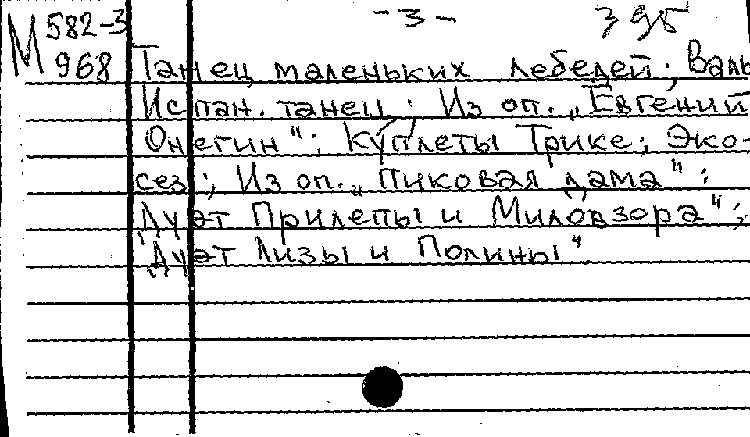 М 582-3 -3- 395
968 Танец маленьких лебедей; Валь
Испан. танец; Из оп. „Евгений
Онегин"; Куплеты Трике; Эко-
сез; Из оп. „Пиковая дама":
Дуэт Прилепы и Миловзора";
"Дуэт Лизы и Полины"